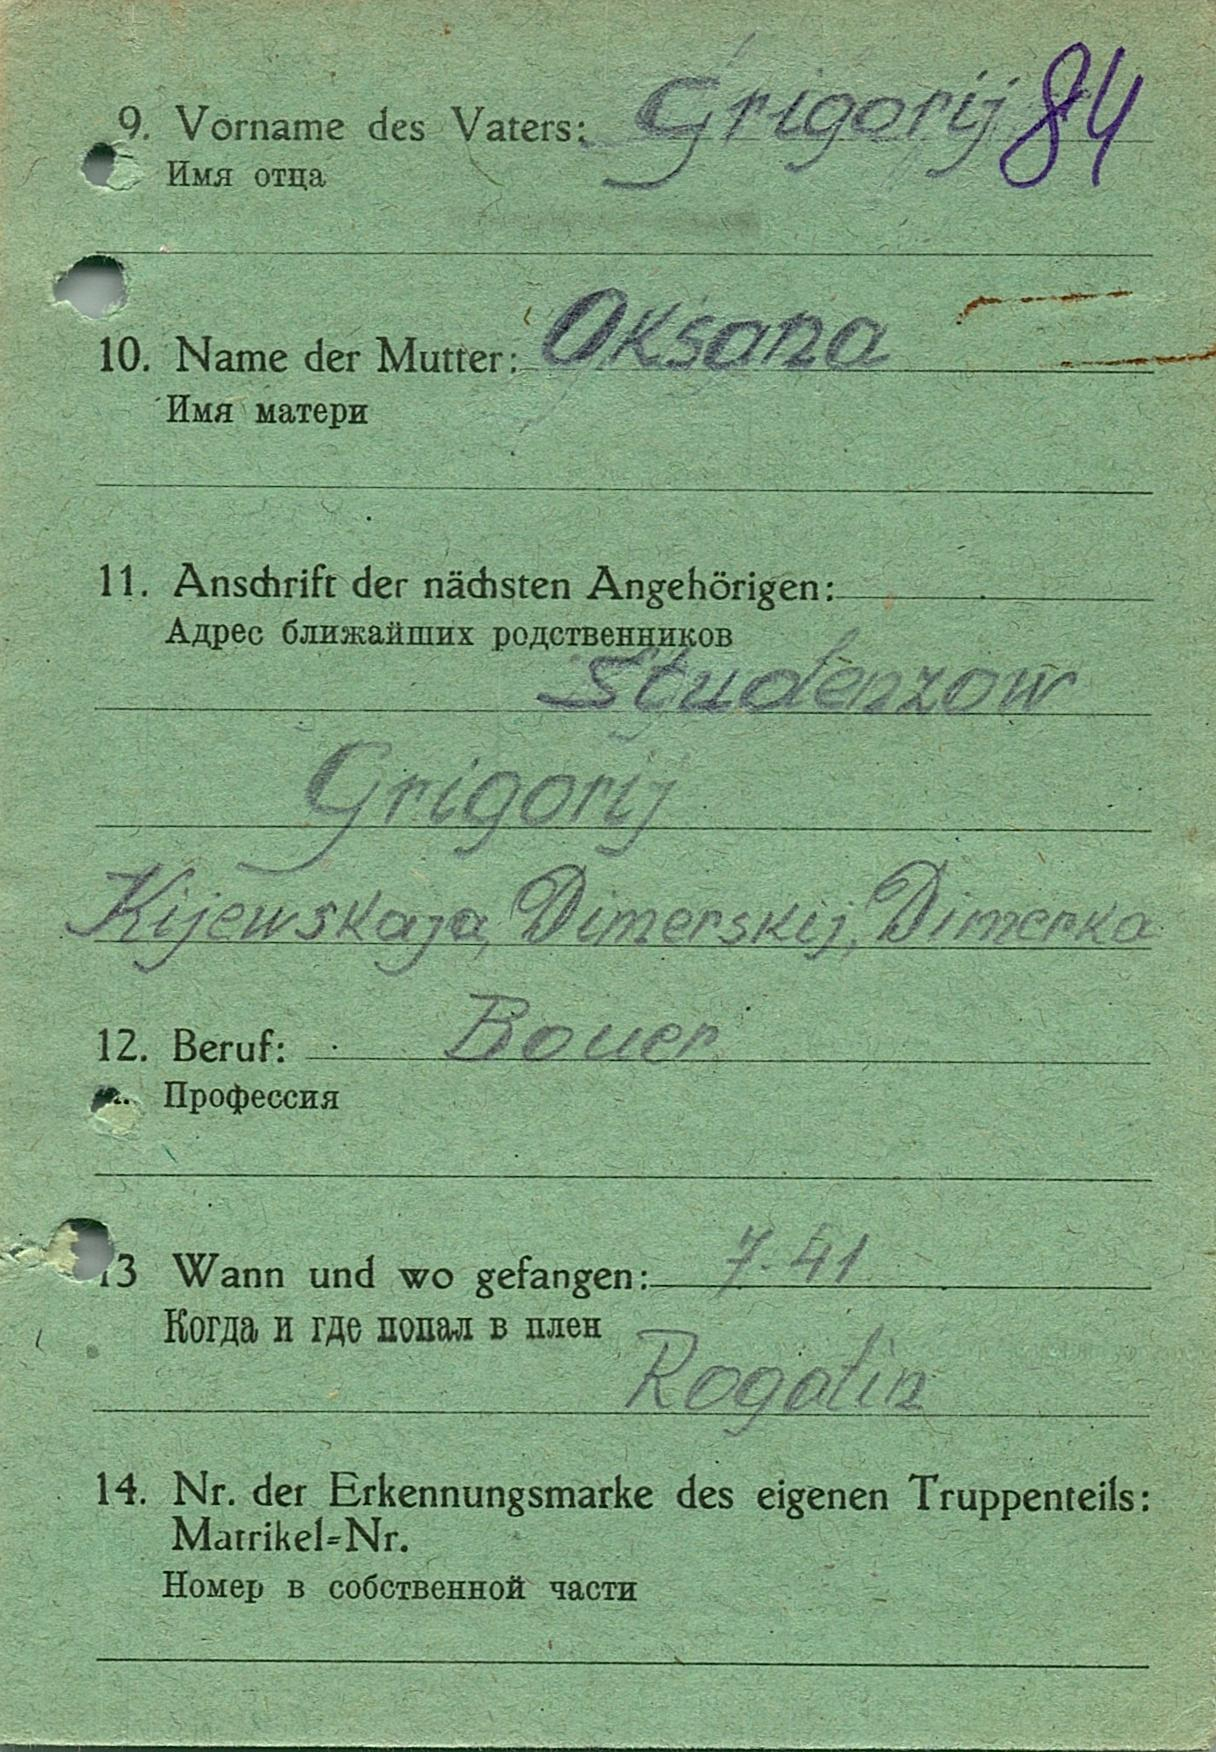 9. Vorname des Vaters: Grigorij 84
Имя отца
10. Name der Mutter: Oksana
Имя матери
11. Anschrift der nächsten Angehörigen:
Адрес ближайших родственников
Studenzow
Grigorij
Kijewskaja, Dimerskij, Dimerka
12. Beruf: Bauer
Профессия
13 Wann und wo gefangen: 7.41
Когда и где попал в плен
Rogatin
14. Nr. der Erkennungsmarke des eigenen Truppenteils:
Matrikel=Nr.
Номер в собственной части